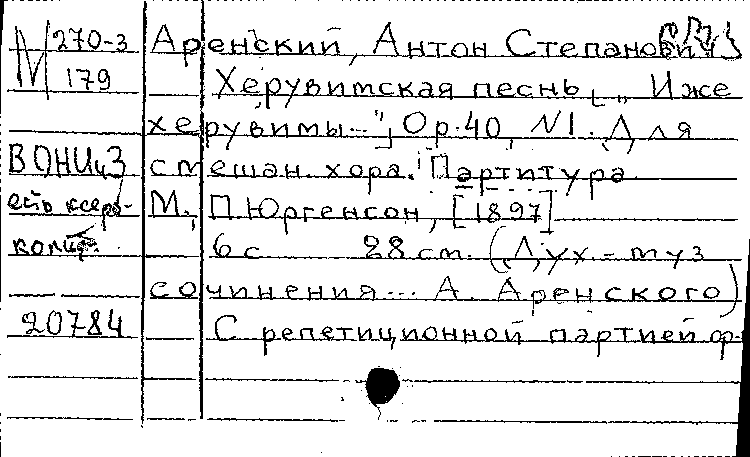 М 270-3 Аренский, Антон Степанович
179 Херувимская песнь [„Иже
херувимы..."], Op.40, N1. Для
ВОНИиЗ смешан. хора. Партитура
есть ксеро- М., П.Юргенсон, [1897]
копия 6 с 28 см. (Дух.-муз
сочинения... А. Аренского)
20784 С репетиционной партией ф-